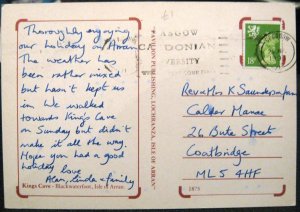 £1
Thoroughly enjoying
our holiday on Arran
The weather has
been rather mixed
but hasn't kept us
in. We walked
towards Kings Cave
on Sunday but didn't
make it all the way.
Hope you had a good
holiday Love
Alan, Linda & family
Kings Cave - Blackwaterfoot, Isle of Arran.
PUBLISHING, LOCHRANZA, ISLE OF ARRAN
ASGOW
CA DONIAN
VERSITY
18
Rev & Mrs K Saunderson
Calder Manse
26 Bute Street
Coatbridge
ML5 4HF